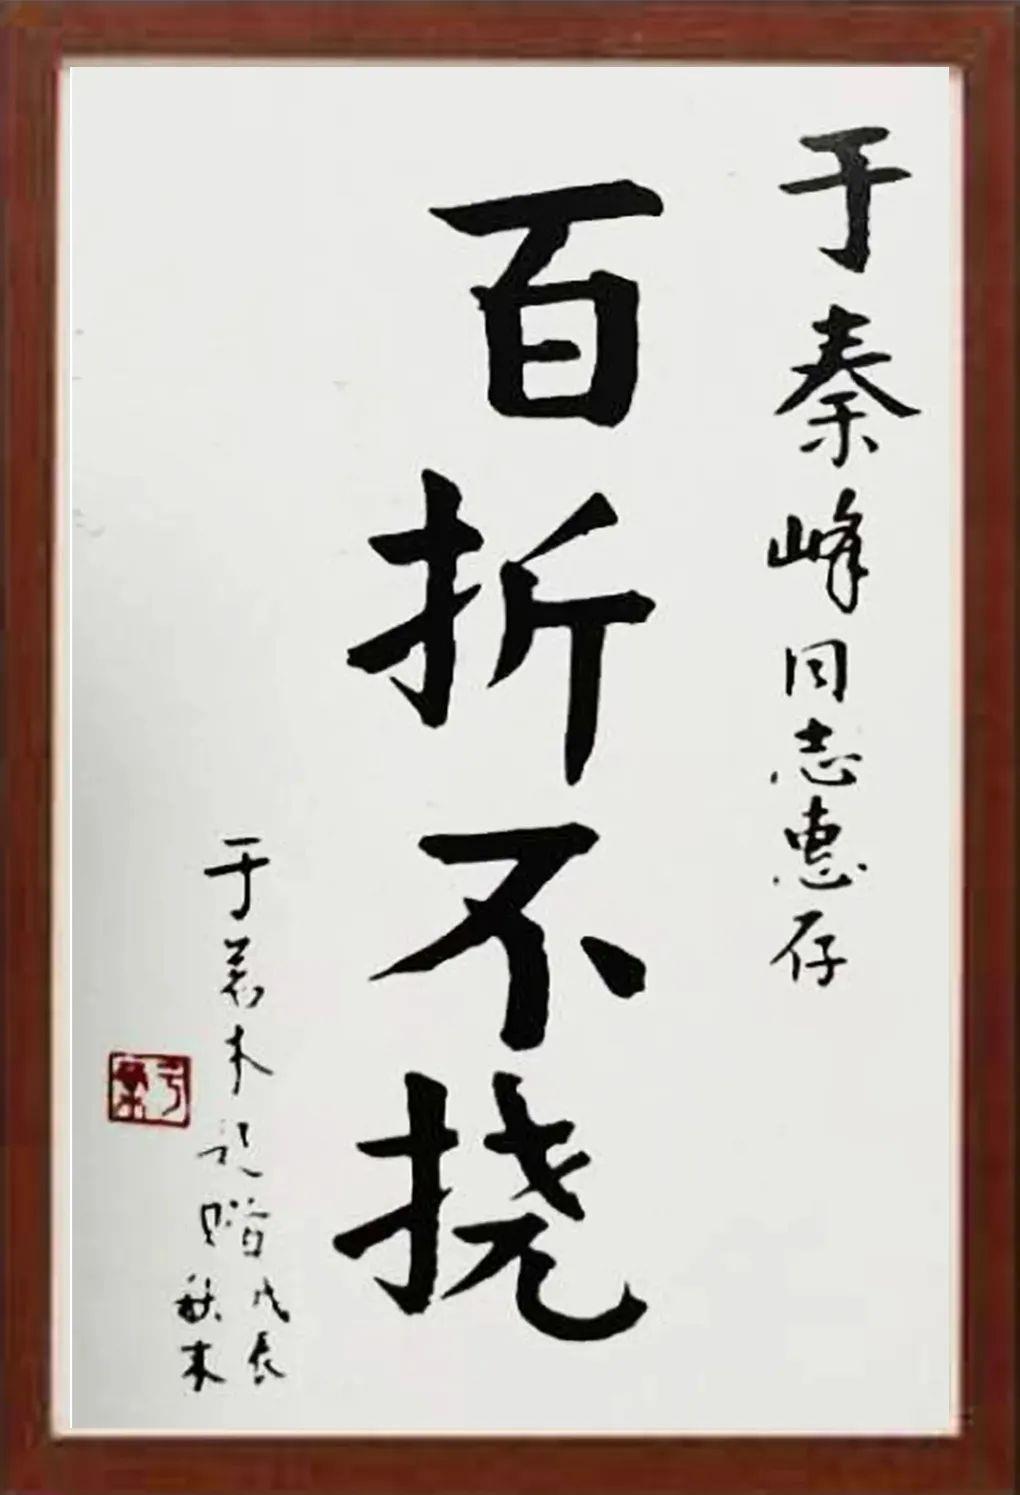 于秦峰同志惠存
百折不挠
于若木记赠
戊辰
秋末
于若木